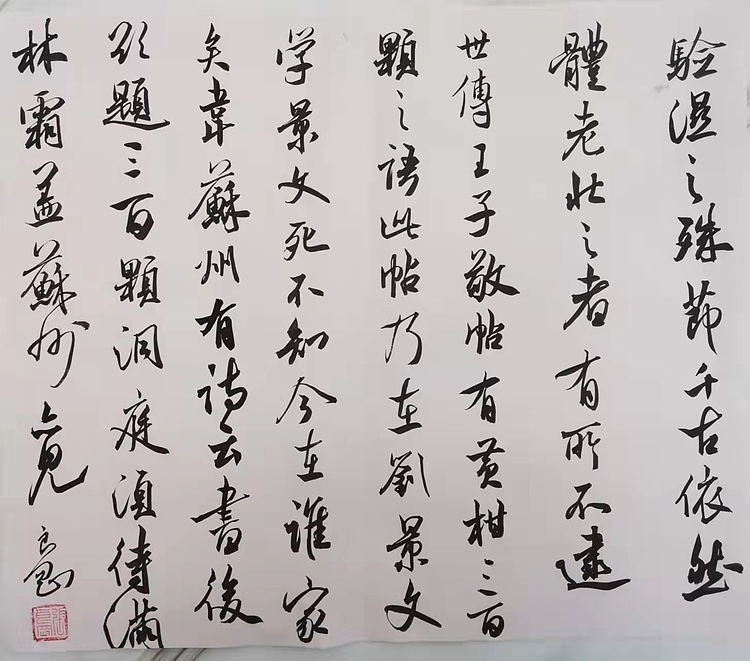 驗濕之殊節千古依然
體老壯之者有所不逮
世傳王子敬帖有黄柑三百
顆之語此帖乃在劉景文
学景文死不知今在誰家
矣韋蘇州有詩云書後
欲題三百顆洞庭須待滿
林霜盖蘇州亦見